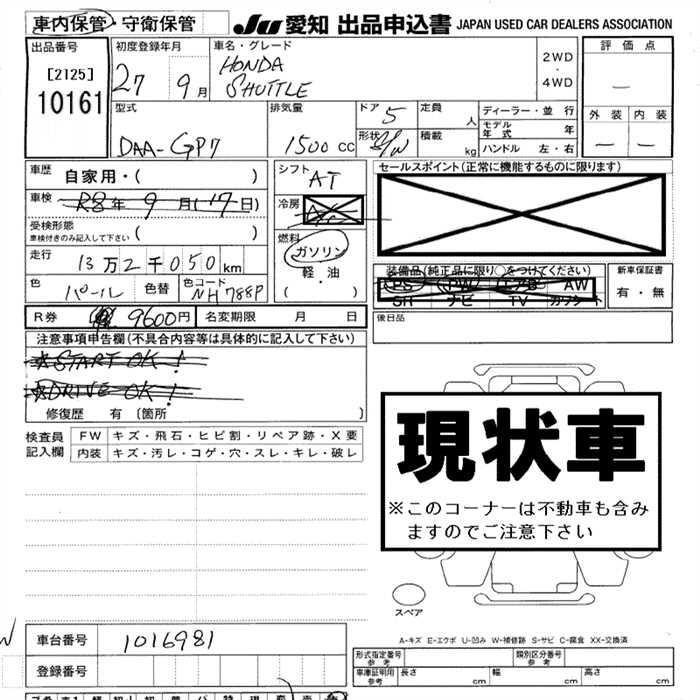 車内保管・守衛保管
JU 愛知 出品申込書 JAPAN USED CAR DEALERS ASSOCIATION
出品番号
[2125]
10161
初度登録年月
27 9月
車名・グレード
HONDA
SHUTTLE
2WD
・
4WD
評価点
—
外装 内装
— —
型式
DAA-GP7
排気量
1500 CC
ドア 5
形状 S/W
定員 人
積載 kg
ディーラー・並行
モデル年式 年
ハンドル 左・右
車歴 自家用・( )
車検 R8年 9月(17日)
受検形態
車検付きのみ記入して下さい ( )
走行 13万2千050km
色 パール 色替 色コード NH788P
シフト AT
冷房
燃料
ガソリン
軽・油
( )
セールスポイント(正常に機能するものに限ります)
装備品(純正品に限り○をつけてください)
PS PW エアB AW
SR ナビ TV カワシート
新車保証書
有・無
R券 9600円 名変期限 月 日
後日品
注意事項申告欄(不具合内容等は具体的に記入して下さい)
☆START OK!
☆DRIVE OK!
修復歴 有 〔箇所 〕
検査員
記入欄
FW キズ・飛石・ヒビ割・リペア跡・X要
内装 キズ・汚レ・コゲ・穴・スレ・キレ・破レ
現状車
※このコーナーは不動車も含み
ますのでご注意下さい
スペア
A-キズ E-エクボ U-凹み W-補修跡 S-サビ C-腐食 XX-交換済
車台番号 1016981
登録番号
形式指定番号
参考
類別区分番号
参考
車庫証明用
参考
長さ cm 幅 cm 高さ cm